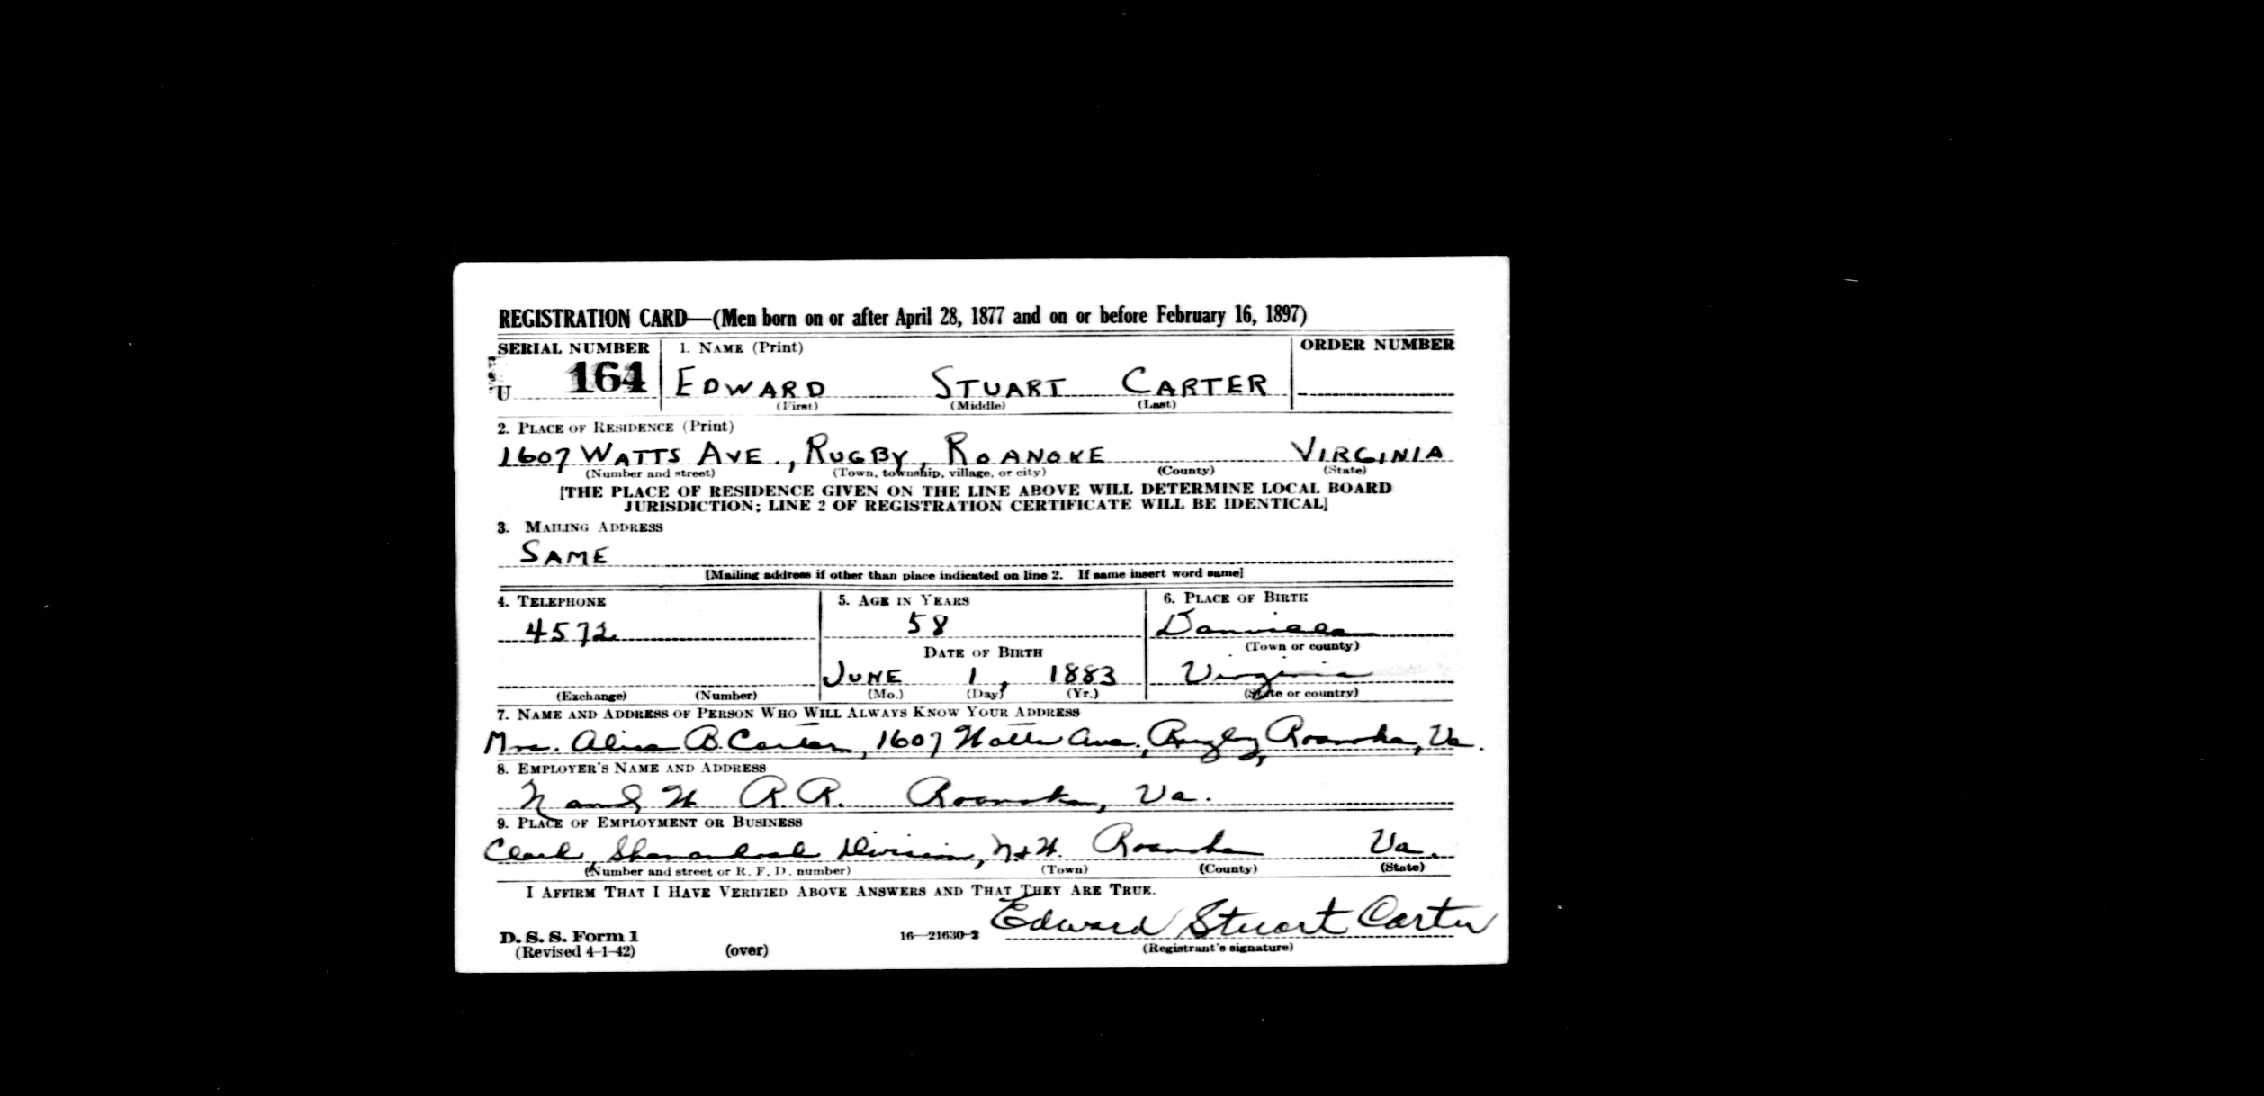 REGISTRATION CARD—(Men born on or after April 28, 1877 and on or before February 16, 1897)
SERIAL NUMBER 1. NAME (Print) ORDER NUMBER
U 164 EDWARD STUART CARTER
(First) (Middle) (Last)
2. PLACE OF RESIDENCE (Print)
1607 WATTS AVE., RUGBY, ROANOKE VIRGINIA
(Number and street) (Town, township, village, or city) (County) (State)
[THE PLACE OF RESIDENCE GIVEN ON THE LINE ABOVE WILL DETERMINE LOCAL BOARD
JURISDICTION; LINE 2 OF REGISTRATION CERTIFICATE WILL BE IDENTICAL]
3. MAILING ADDRESS
SAME
[Mailing address if other than place indicated on line 2. If same insert word same]
4. TELEPHONE 5. AGE IN YEARS 6. PLACE OF BIRTH
4572 58 Danville
DATE OF BIRTH (Town or county)
JUNE 1, 1883 Virginia
(Exchange) (Number) (Mo.) (Day) (Yr.) (State or country)
7. NAME AND ADDRESS OF PERSON WHO WILL ALWAYS KNOW YOUR ADDRESS
Mrs. B. Carter, 1607 Watts Ave., Rugby, Roanoke, Va.
8. EMPLOYER'S NAME AND ADDRESS
N and W R.R. Roanoke, Va.
9. PLACE OF EMPLOYMENT OR BUSINESS
Clerk, Shenandoah Division, N+W. Roanoke Va.
(Number and street or R. F. D. number) (Town) (County) (State)
I AFFIRM THAT I HAVE VERIFIED ABOVE ANSWERS AND THAT THEY ARE TRUE.
Edward Stuart Carter
D. S. S. Form 1 16—21630-2
(Revised 4-1-42) (over) (Registrant's signature)